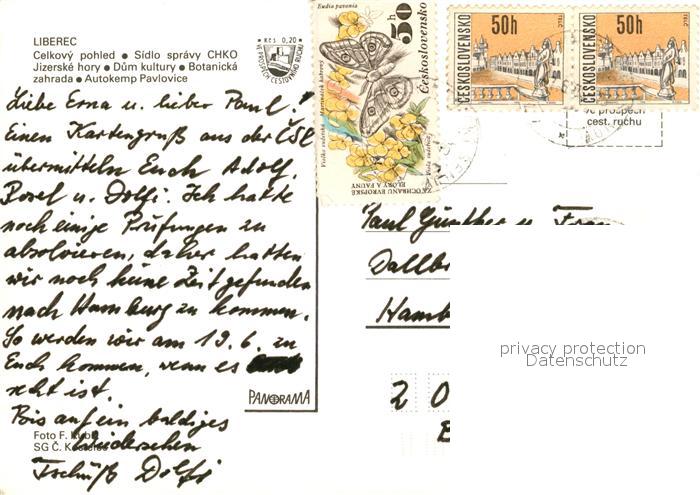 LIBEREC
Celkový pohled ● Sídlo správy CHKO
Jizerské hory ● Dům kultury ● Botanická
zahrada ● Autokemp Pavlovice
Kčs 0,20
VE PROSPĚCH CESTOVNÍHO RUCHU
Liebe Erna u. lieber Paul!
Einen Kartengruß aus der ČSR
übermitteln Euch Adolf,
Rosel u. Dolfi. Ich hatte
noch einige Prüfungen zu
absolvieren, daher hatten
wir noch keine Zeit gefunden
nach Hamburg zu kommen.
So werden wir am 19.6. zu
Euch kommen, wenn es
recht ist.
Bis auf ein baldiges
Wiedersehen
Tschüß Dolfi
Foto F.
SG Č.
PANORAMA
Eudia pavonia
50h
Československo
ZA OCHRANU EVROPSKÉ
FLÓRY A FAUNY
ČESKOSLOVENSKO
50h
TELČ
ČESKOSLOVENSKO
50h
TELČ
ve prospěch
cest. ruchu
Paul Günther u. Frau
Dallb
Hamb
2 0
privacy protection
Datenschutz